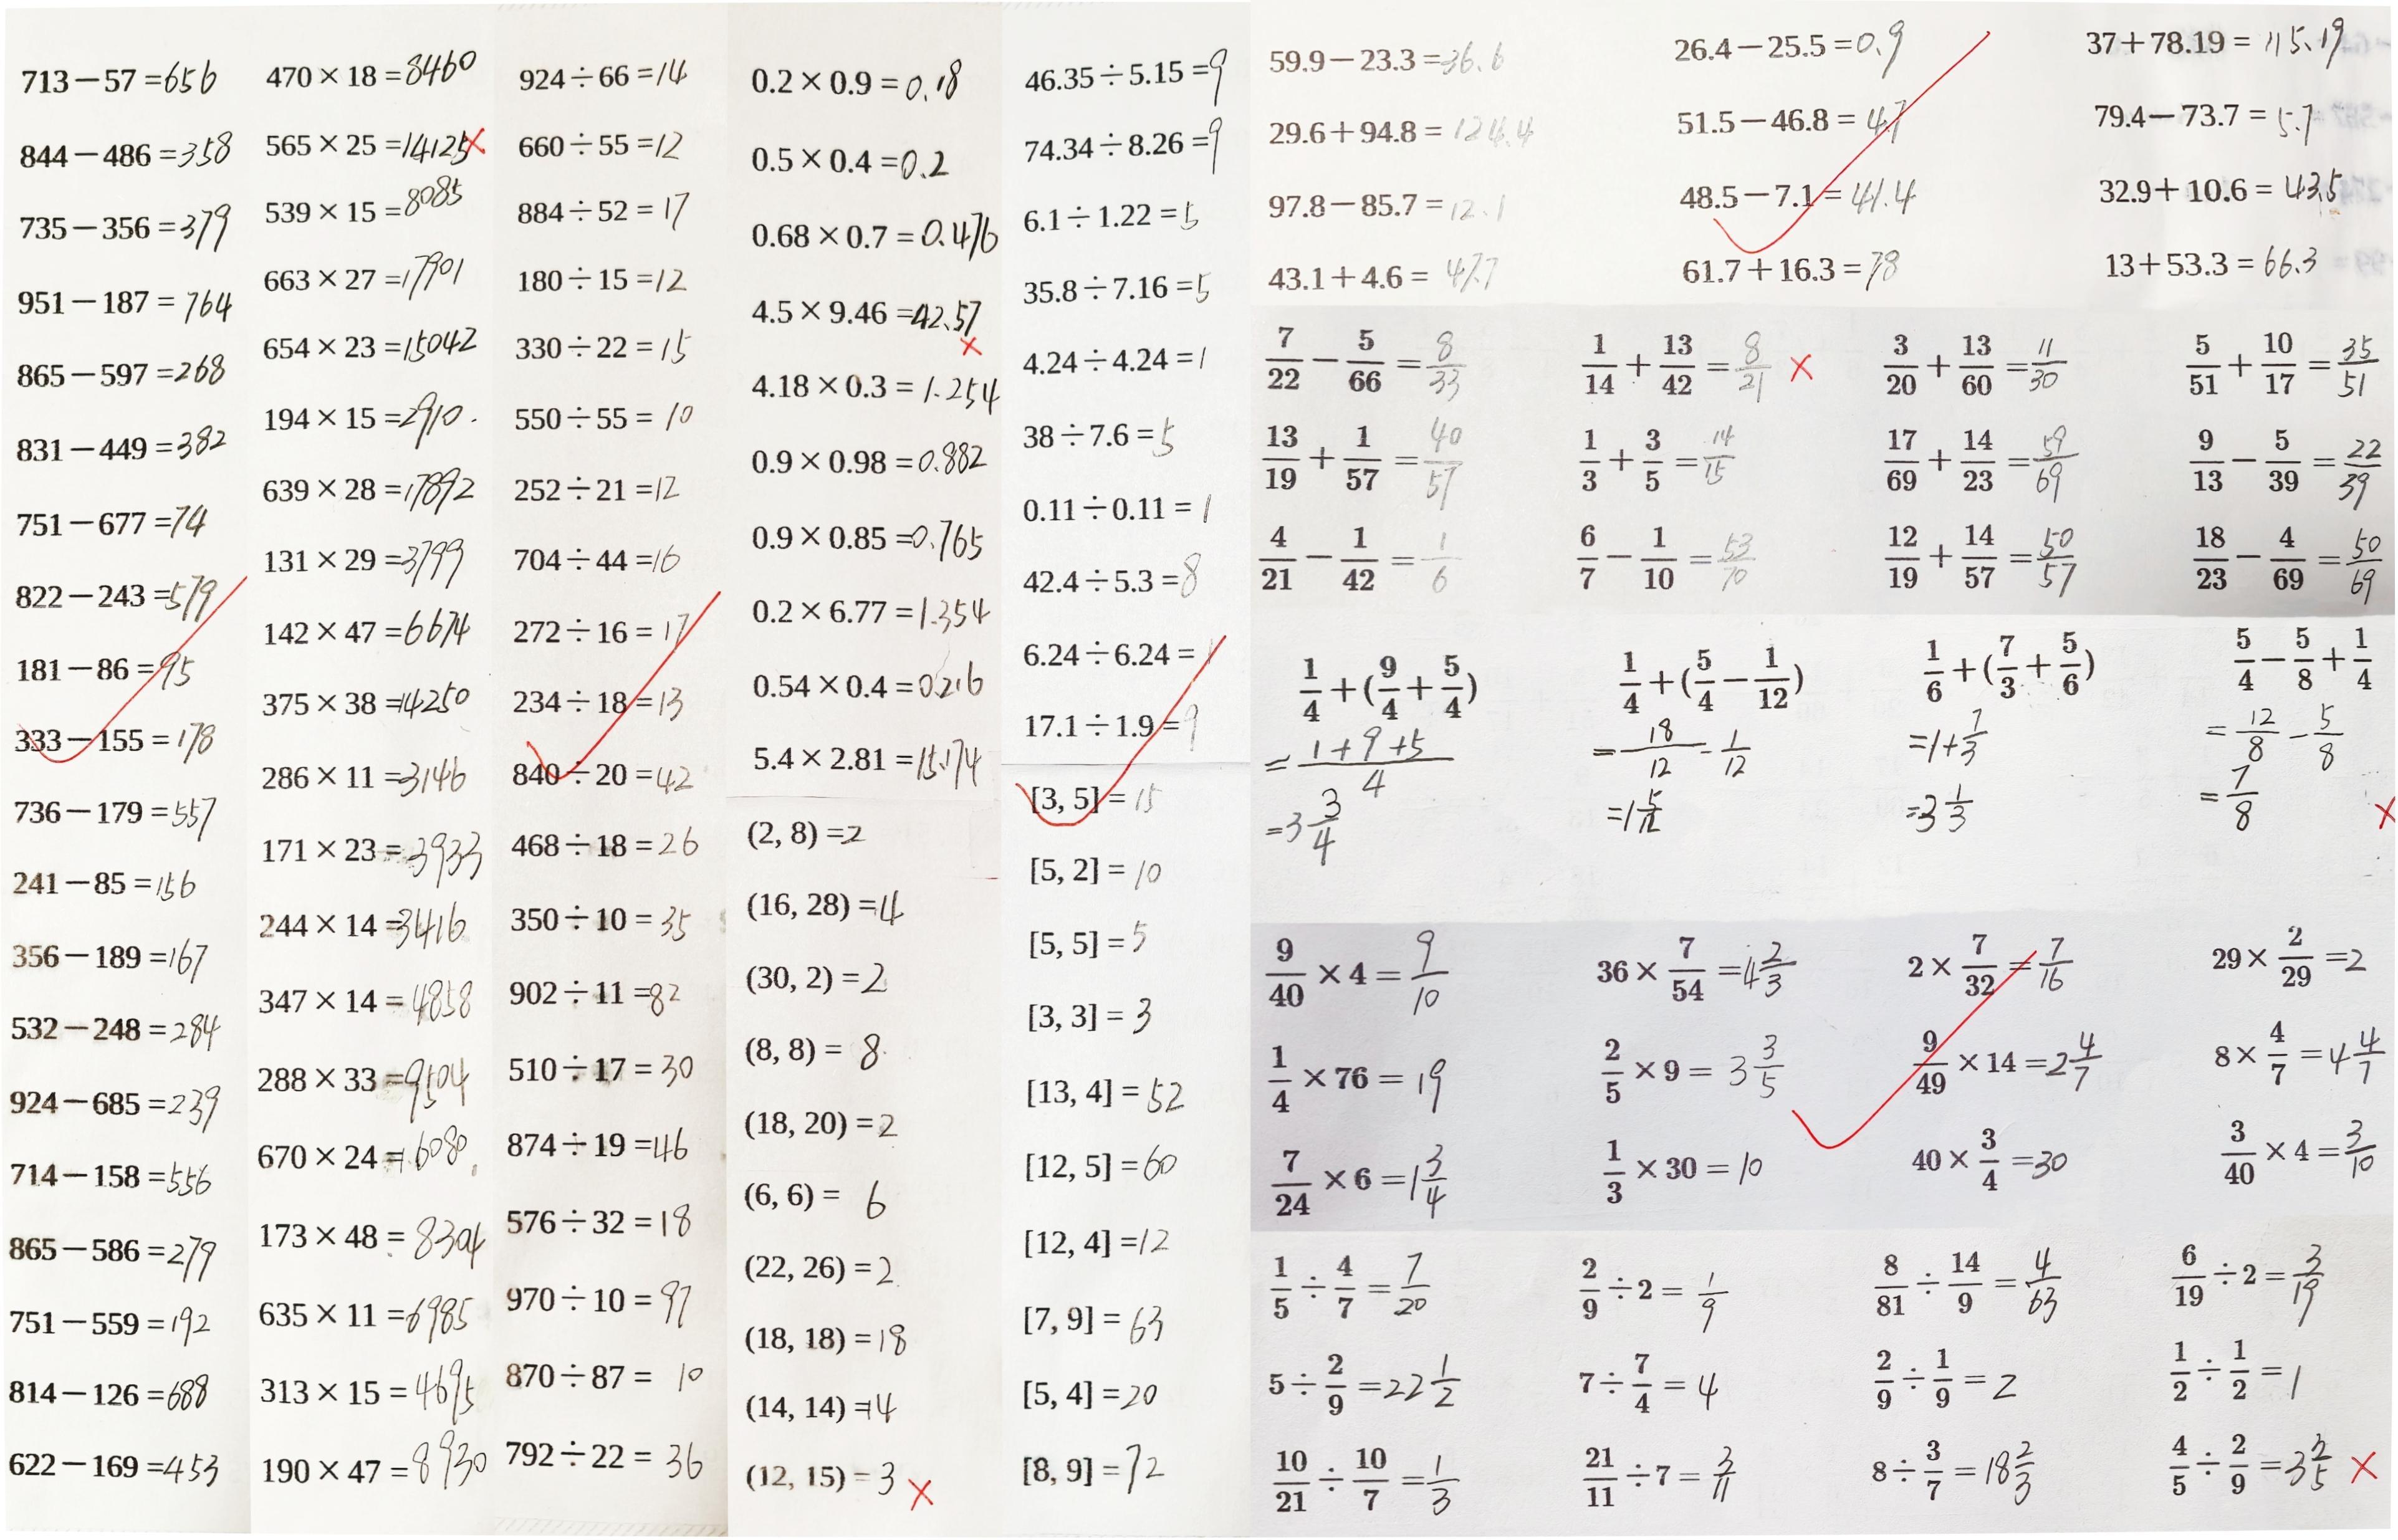 713－57=656
844－486=358
735－356=379
951－187=764
865－597=268
831－449=382
751－677=74
822－243=579
181－86=95
333－155=178
736－179=557
241－85=156
356－189=167
532－248=284
924－685=239
714－158=556
865－586=279
751－559=192
814－126=688
622－169=453
470×18=8460
565×25=14125
539×15=8085
663×27=17901
654×23=15042
194×15=2910.
639×28=17892
131×29=3799
142×47=6674
375×38=14250
286×11=3146
171×23=3933
244×14=3416
347×14=4858
288×33=9504
670×24=16080
173×48=8304
635×11=6985
313×15=4695
190×47=8930
924÷66=14
660÷55=12
884÷52=17
180÷15=12
330÷22=15
550÷55=10
252÷21=12
704÷44=16
272÷16=17
234÷18=13
840÷20=42
468÷18=26
350÷10=35
902÷11=82
510÷17=30
874÷19=46
576÷32=18
970÷10=97
870÷87=10
792÷22=36
0.2×0.9=0.18
0.5×0.4=0.2
0.68×0.7=0.476
4.5×9.46=42.57
4.18×0.3=1.254
0.9×0.98=0.882
0.9×0.85=0.765
0.2×6.77=1.354
0.54×0.4=0.216
5.4×2.81=15.174
(2, 8)=2
(16, 28)=4
(30, 2)=2
(8, 8)=8
(18, 20)=2
(6, 6)=6
(22, 26)=2
(18, 18)=18
(14, 14)=14
(12, 15)=3
46.35÷5.15=9
74.34÷8.26=9
6.1÷1.22=5
35.8÷7.16=5
4.24÷4.24=1
38÷7.6=5
0.11÷0.11=1
42.4÷5.3=8
6.24÷6.24=1
17.1÷1.9=9
[3, 5]=15
[5, 2]=10
[5, 5]=5
[3, 3]=3
[13, 4]=52
[12, 5]=60
[12, 4]=12
[7, 9]=63
[5, 4]=20
[8, 9]=72
59.9－23.3=36.6 26.4－25.5=0.9 37+78.19=115.19
29.6+94.8=124.4 51.5－46.8=4.7 79.4－73.7=5.7
97.8－85.7=12.1 48.5－7.1=41.4 32.9+10.6=43.5
43.1+4.6=47.7 61.7+16.3=78 13+53.3=66.3
7/22－5/66=8/33 1/14+13/42=8/21 3/20+13/60=11/30 5/51+10/17=35/51
13/19+1/57=40/57 1/3+3/5=14/15 17/69+14/23=59/69 9/13－5/39=22/39
4/21－1/42=1/6 6/7－1/10=53/70 12/19+14/57=50/57 18/23－4/69=50/69
1/4+(9/4+5/4) 1/4+(5/4－1/12) 1/6+(7/3+5/6) 5/4－5/8+1/4
=(1+9+5)/4 =18/12－1/12 =1+7/3 =12/8－5/8
=3 3/4 =1 5/12 =3 1/3 =7/8
9/40×4=9/10 36×7/54=4 2/3 2×7/32=7/16 29×2/29=2
1/4×76=19 2/5×9=3 3/5 9/49×14=2 4/7 8×4/7=4 4/7
7/24×6=1 3/4 1/3×30=10 40×3/4=30 3/40×4=3/10
1/5÷4/7=7/20 2/9÷2=1/9 8/81÷14/9=4/63 6/19÷2=3/19
5÷2/9=22 1/2 7÷7/4=4 2/9÷1/9=2 1/2÷1/2=1
10/21÷10/7=1/3 21/11÷7=3/11 8÷3/7=18 2/3 4/5÷2/9=3 2/5